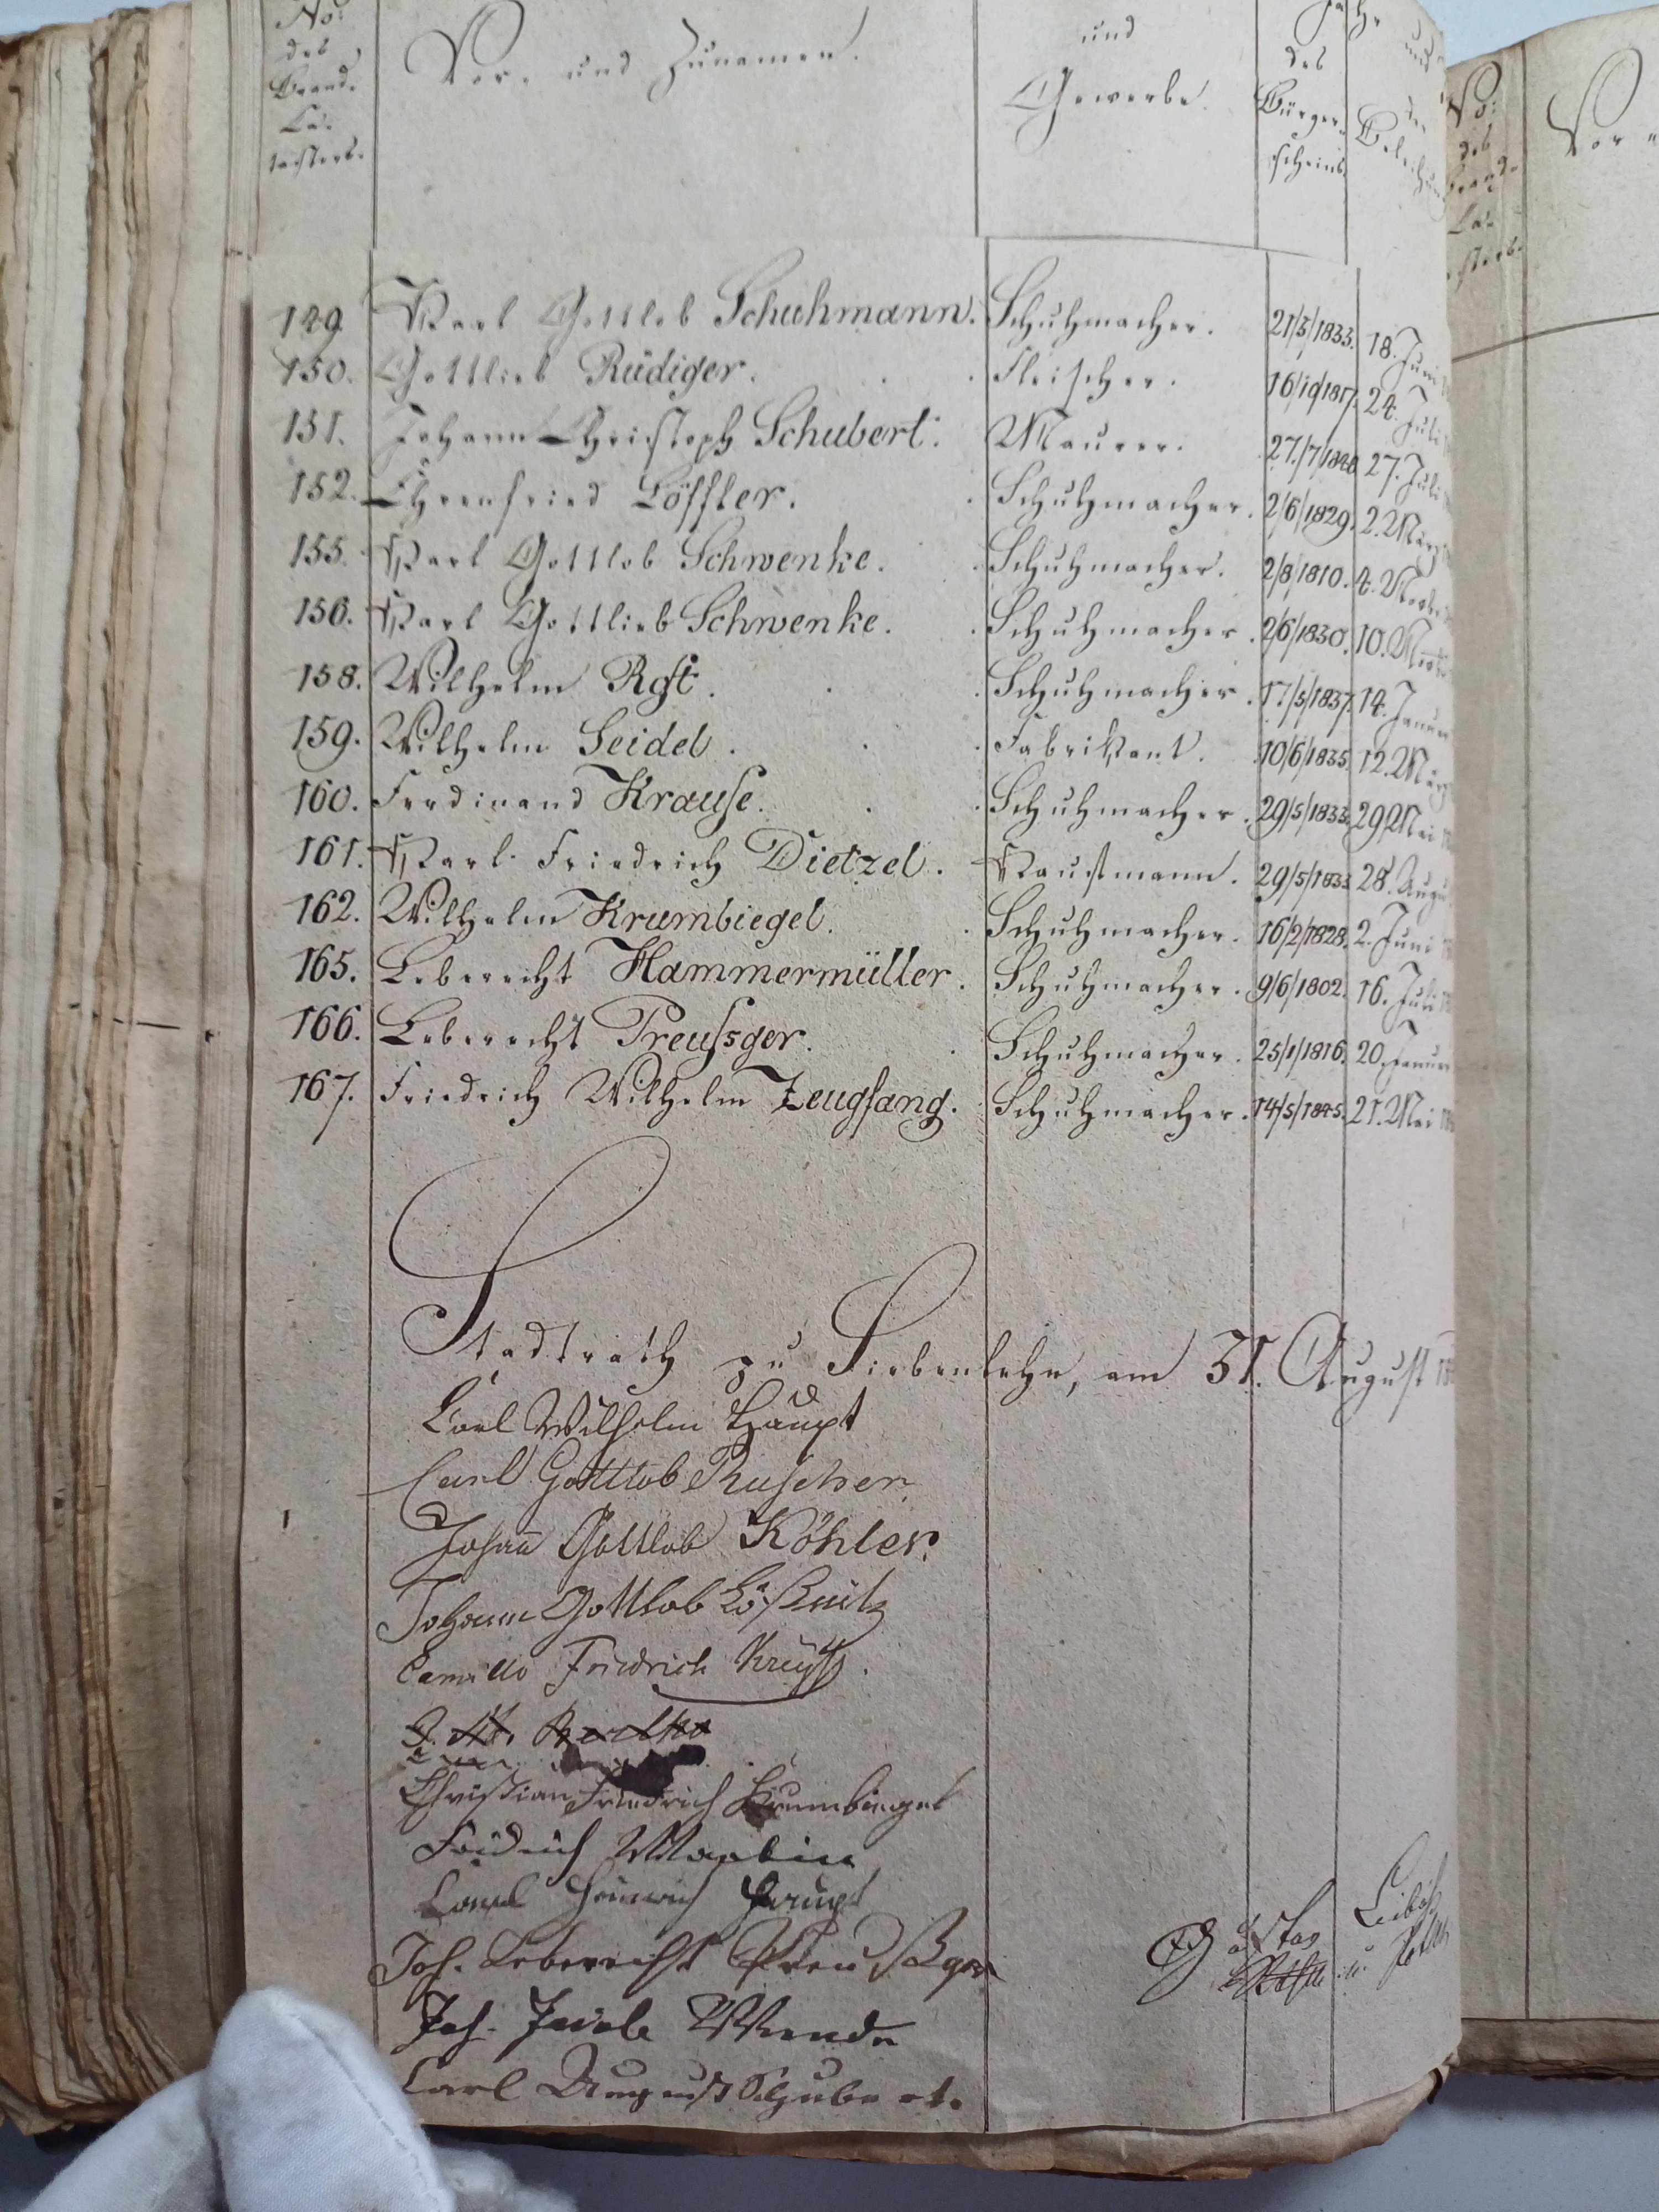 No:
des
Brand-
Ca-
tasters.
Vor- und Zunamen.
und
Gewerbe.
Jahr
des
Bürger-
scheins.
und
der
149. Karl Gottlob Schuhmann. Schuhmacher. 21/3/1833. 18. Juni
150. Gottlieb Rüdiger. Fleischer. 24. Juli
151. Johann Christoph Schubert. Maurer. 27. Juli
152. Ehrenfried Löffler. Schuhmacher. 2/6/1829. 2. März
155. Karl Gottlob Schwenke. Schuhmacher. 2/8/1810. 4.
156. Karl Gottlieb Schwenke. Schuhmacher. 2/6/1830. 10.
158. Wilhelm Schuhmacher. 17/5/1837. 14. Januar
159. Wilhelm Seidel. Fabrikant. 10/6/1835. 12. März
160. Ferdinand Krause. Schuhmacher. 29/5/1833. 29 Mai
161. Karl Friedrich Dietzel. Kaufmann. 29/5/1833 28. Augu
162. Wilhelm Krumbiegel. Schuhmacher. 16/2/1828. 2. Juni
165. Leberecht Hammermüller. Schuhmacher. 9/6/1802. 16. Juli
166. Leberecht Preußger. Schuhmacher. 25/1/1816. 20. Januar
167. Friedrich Wilhelm Zeugfang. Schuhmacher. 14/5/1845. 21. Mai
Stadtrath zu Siebenlehn, am 31. August
Carl Wilhelm Haupt
Carl Gottlob Ruscher.
Johañ Gottlob Köhler.
Johann Gottlob Lößnitz
Camillo Friedrich
Christian Friedrich Krumbiegel
Friedrich Martin
Carl Heinrich Haupt
Joh. Leberecht Preußger
Joh. Jacob Wende
Carl August Schubert.
Gustav
No:
des
Brand-
Ca-
Vor-